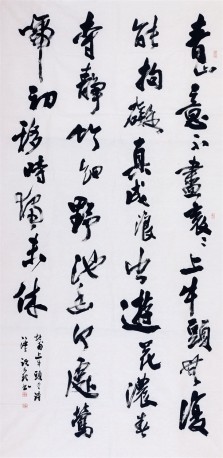 青山意不盡衮々上牛頭無復
能拘礙真成浪出遊花濃春
寺靜竹細野池幽何處鶯
啼切移時獨未休
杜甫上牛頭寺詩